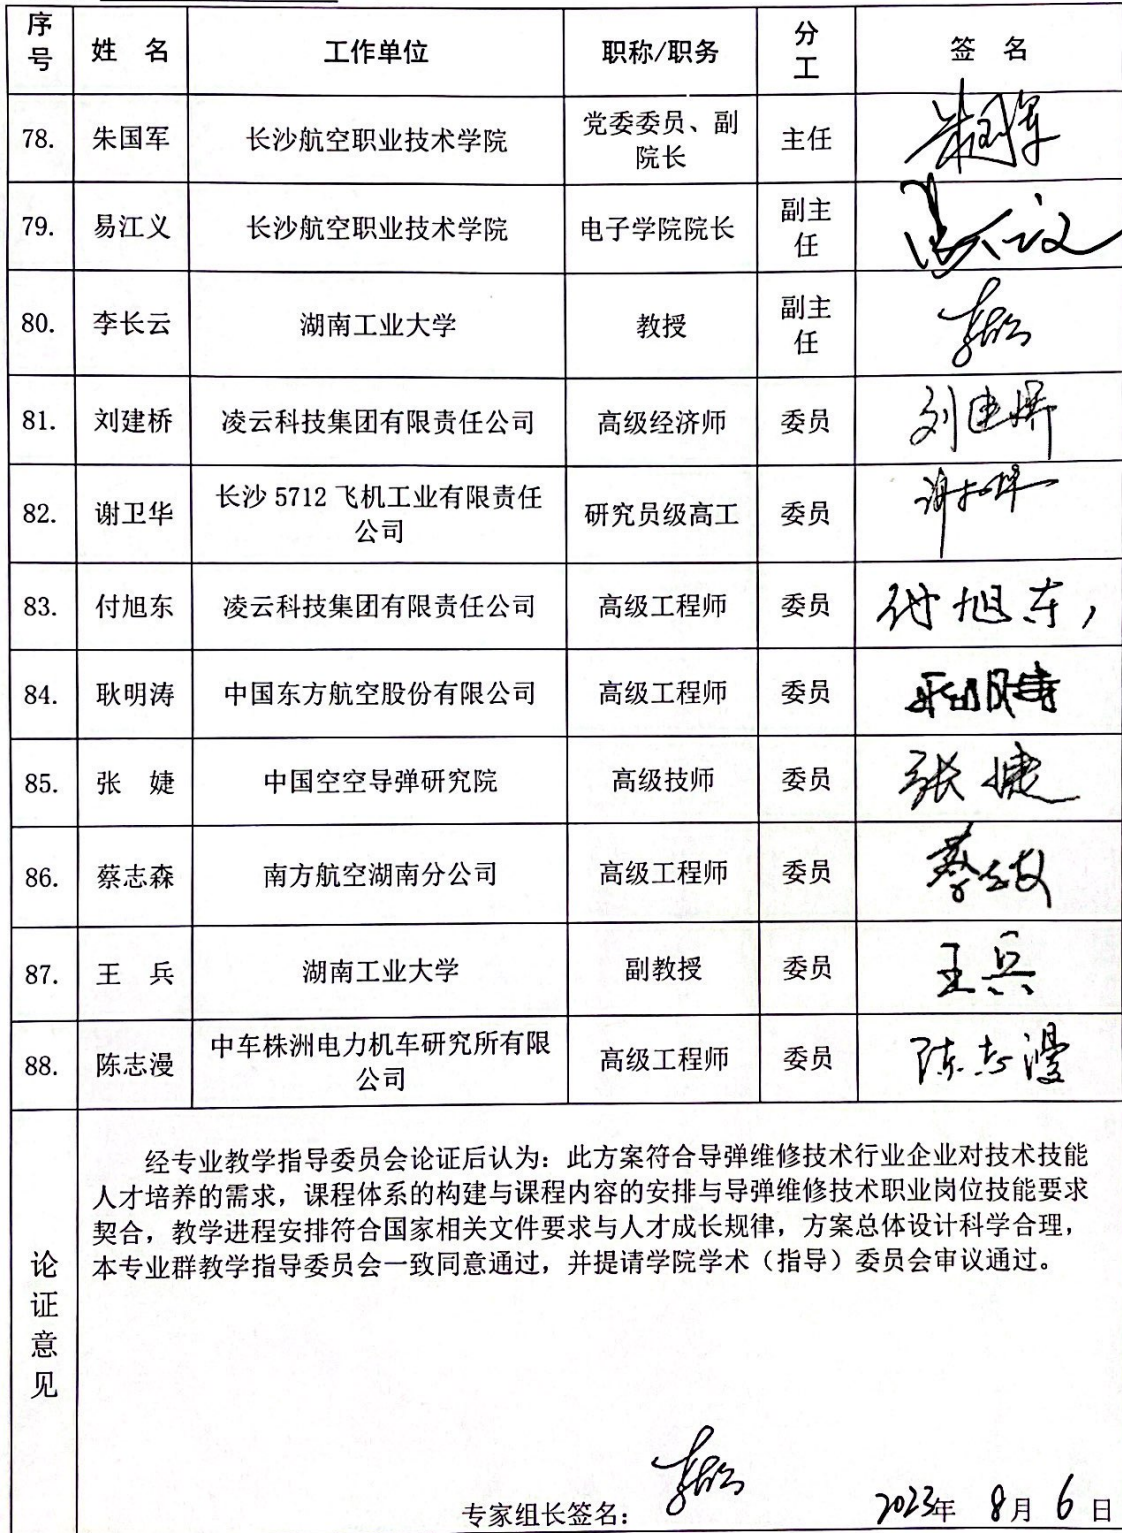 序号 姓 名 工作单位 职称/职务 分工 签 名
78. 朱国军 长沙航空职业技术学院 党委委员、副院长 主任
79. 易江义 长沙航空职业技术学院 电子学院院长 副主任
80. 李长云 湖南工业大学 教授 副主任
81. 刘建桥 凌云科技集团有限责任公司 高级经济师 委员
82. 谢卫华 长沙 5712 飞机工业有限责任公司 研究员级高工 委员
83. 付旭东 凌云科技集团有限责任公司 高级工程师 委员 付旭东
84. 耿明涛 中国东方航空股份有限公司 高级工程师 委员
85. 张 婕 中国空空导弹研究院 高级技师 委员 张婕
86. 蔡志森 南方航空湖南分公司 高级工程师 委员
87. 王 兵 湖南工业大学 副教授 委员 王兵
88. 陈志漫 中车株洲电力机车研究所有限公司 高级工程师 委员 陈志漫
论证意见
经专业教学指导委员会论证后认为：此方案符合导弹维修技术行业企业对技术技能
人才培养的需求，课程体系的构建与课程内容的安排与导弹维修技术职业岗位技能要求
契合，教学进程安排符合国家相关文件要求与人才成长规律，方案总体设计科学合理，
本专业群教学指导委员会一致同意通过，并提请学院学术（指导）委员会审议通过。
专家组长签名： 2023年 8月 6日